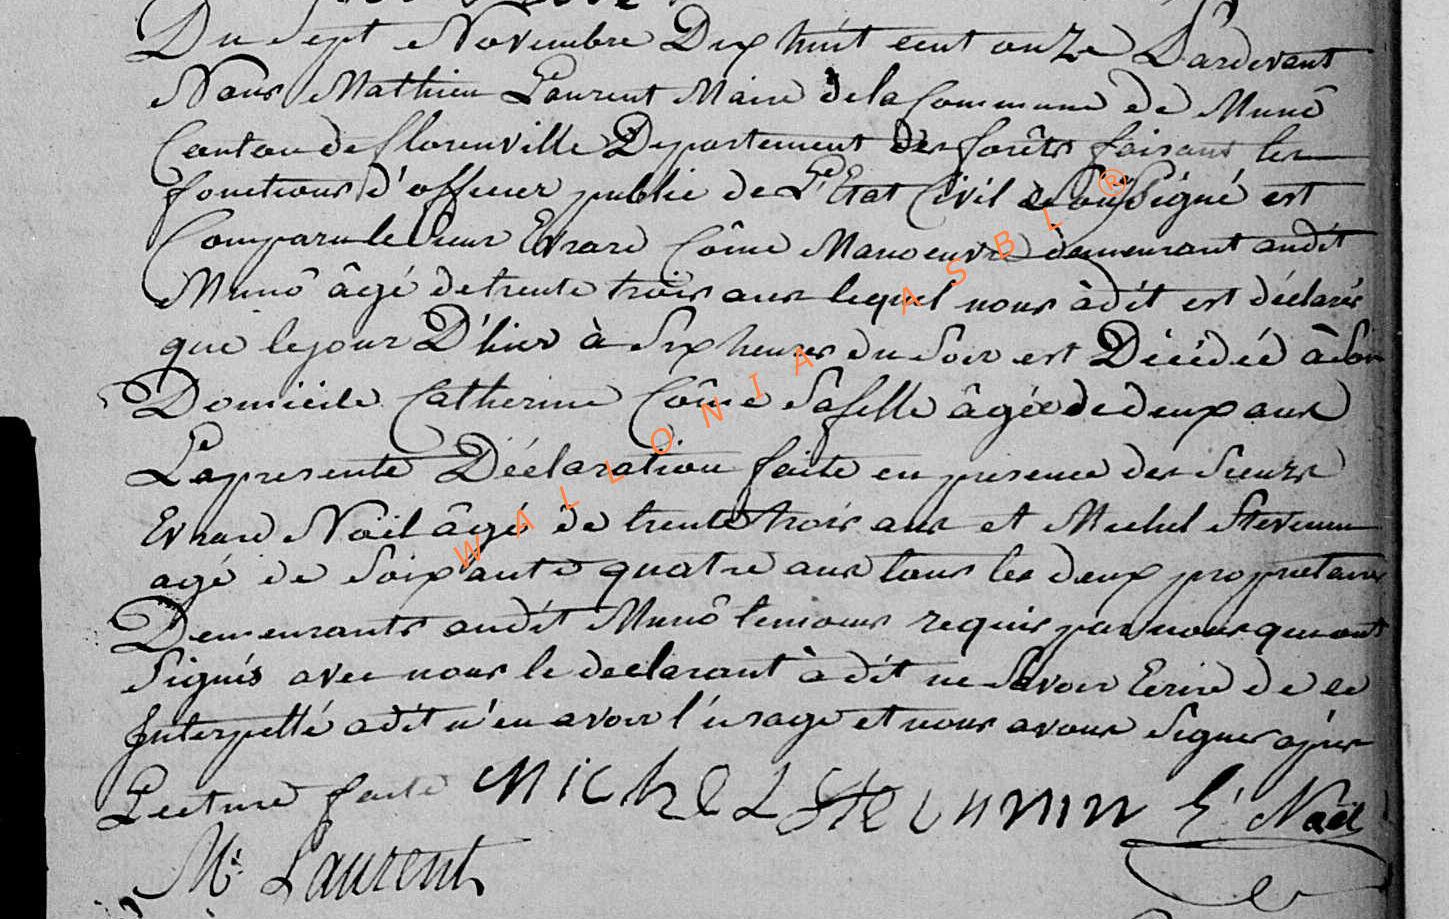 Du Sept Novembre Dix huit cent onze Pardevant
Nous Mathieu Laurent Maire de la Commune de Munô
Canton de florenville Departement des forêts faisant les
fonctions d'officier public de L'Etat Civil Soussigné est
Comparu le Sieur Evrard Côme Manoeuvre demeurant audit
Munô âgé de trente trois ans lequel nous à dit est déclaré
que le jour D'hier à Six heures du Soir est Décédée à Son
Domicile Catherine Côme Sa fille âgée de deux ans
La presente Déclaration faite en presence des Sieurs
Evrard Noël âgé de trente trois ans et Michel Stevenin
agé de Soixante quatre ans tous les deux propriétaires
Demeurants audit Munô temoins requis par nous qui ont
Signés avec nous le declarant à dit ne Savoir Ecrire de ce
Interpellé a dit n'en avoir l'usage et nous avons Signer après
Lecture faite Michel Stevenin E. Noël
M. Laurent
WALLONIA ASBL ®